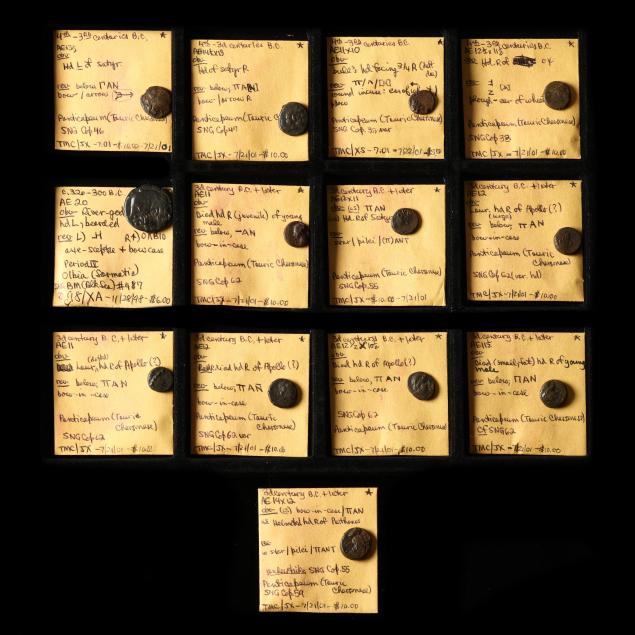 4th-3rd centuries B.C.
obv
Hd L of satyr
rev below, ΠAN
bow/arrow
Panticapaeum (Tauric Chersonese)
SNG Cop 46
4th-3d centuries B.C.
AE14x13
obv
Hd of satyr R
rev below, ΠAN
bow/arrow R
Panticapaeum (Tauric
SNG Cop 47
TMC/JX-7/21/01-$10.00
4th-3rd centuries B.C.
AE11x10
obv
rev Π/A/
bow
Panticapaeum (Tauric Chersonese)
4th-3rd centuries B.C.
Hd R of
plough-ear of wheat
Panticapaeum (Tauric Chersonese)
SNG Cop 38
TMC/JX-7/21/01-$10.00
c. 320-300 B.C.
AE 20
obv River-god
hd L, bearded
axe-sceptre + bowcase
Olbia (Sarmatia)
-11/28/98-$6.00
3d century B.C. + later
AE11
obv
Diad hd R (juvenile) of young
male
rev below, ΠAN
bow-in-case
Panticapaeum (Tauric Chersonese)
SNG Cop 62
TMC/JX-7/21/01-$10.00
3d century B.C. + later
ΠAN
Hd R of Satyr
star/pilei/(Π)ANT
Panticapaeum (Tauric Chersonese)
SNG Cop 55
TMC/JX-7/21/01
3d century B.C. + later
AE12
obv
Laur. hd R of Apollo (?)
(large)
rev below, ΠAN
bow-in-case
Panticapaeum (Tauric
Chersonese)
SNG Cop 62 (var. hd)
TMC/JX-7/21/01-$10.00
3d century B.C. + later
AE11
obv
Laur. hd R of Apollo (?)
rev below, ΠAN
bow-in-case
Panticapaeum (Tauric
Chersonese)
SNG Cop 62
TMC/JX-7/21/01-$10.00
3d century B.C. + later
AE12
obv
Diad hd R of Apollo (?)
rev below, ΠAN
bow-in-case
Panticapaeum (Tauric
Chersonese)
SNG Cop 62 var
TMC/JX-7/21/01-$10.00
3d century B.C. + later
obv
Diad hd R of Apollo (?)
rev below, ΠAN
bow-in-case
SNG Cop 62
Panticapaeum (Tauric Chersonese)
TMC/JX-7/21/01-$10.00
3d century B.C. + later
obv
Diad (small, fat) hd R of young
male
rev below, ΠAN
bow-in-case
Panticapaeum (Tauric
Chersonese)
Cf SNG 62
TMC/JX-7/21/01-$10.00
3d century B.C. + later
AE14x12
obv (cs) bow-in-case/ΠAN
Helmeted hd R of Parthenos
star/pilei/ΠANT
SNG Cop 55
Panticapaeum (Tauric
Chersonese)
SNG Cop 59
TMC/JX-7/21/01-$10.00